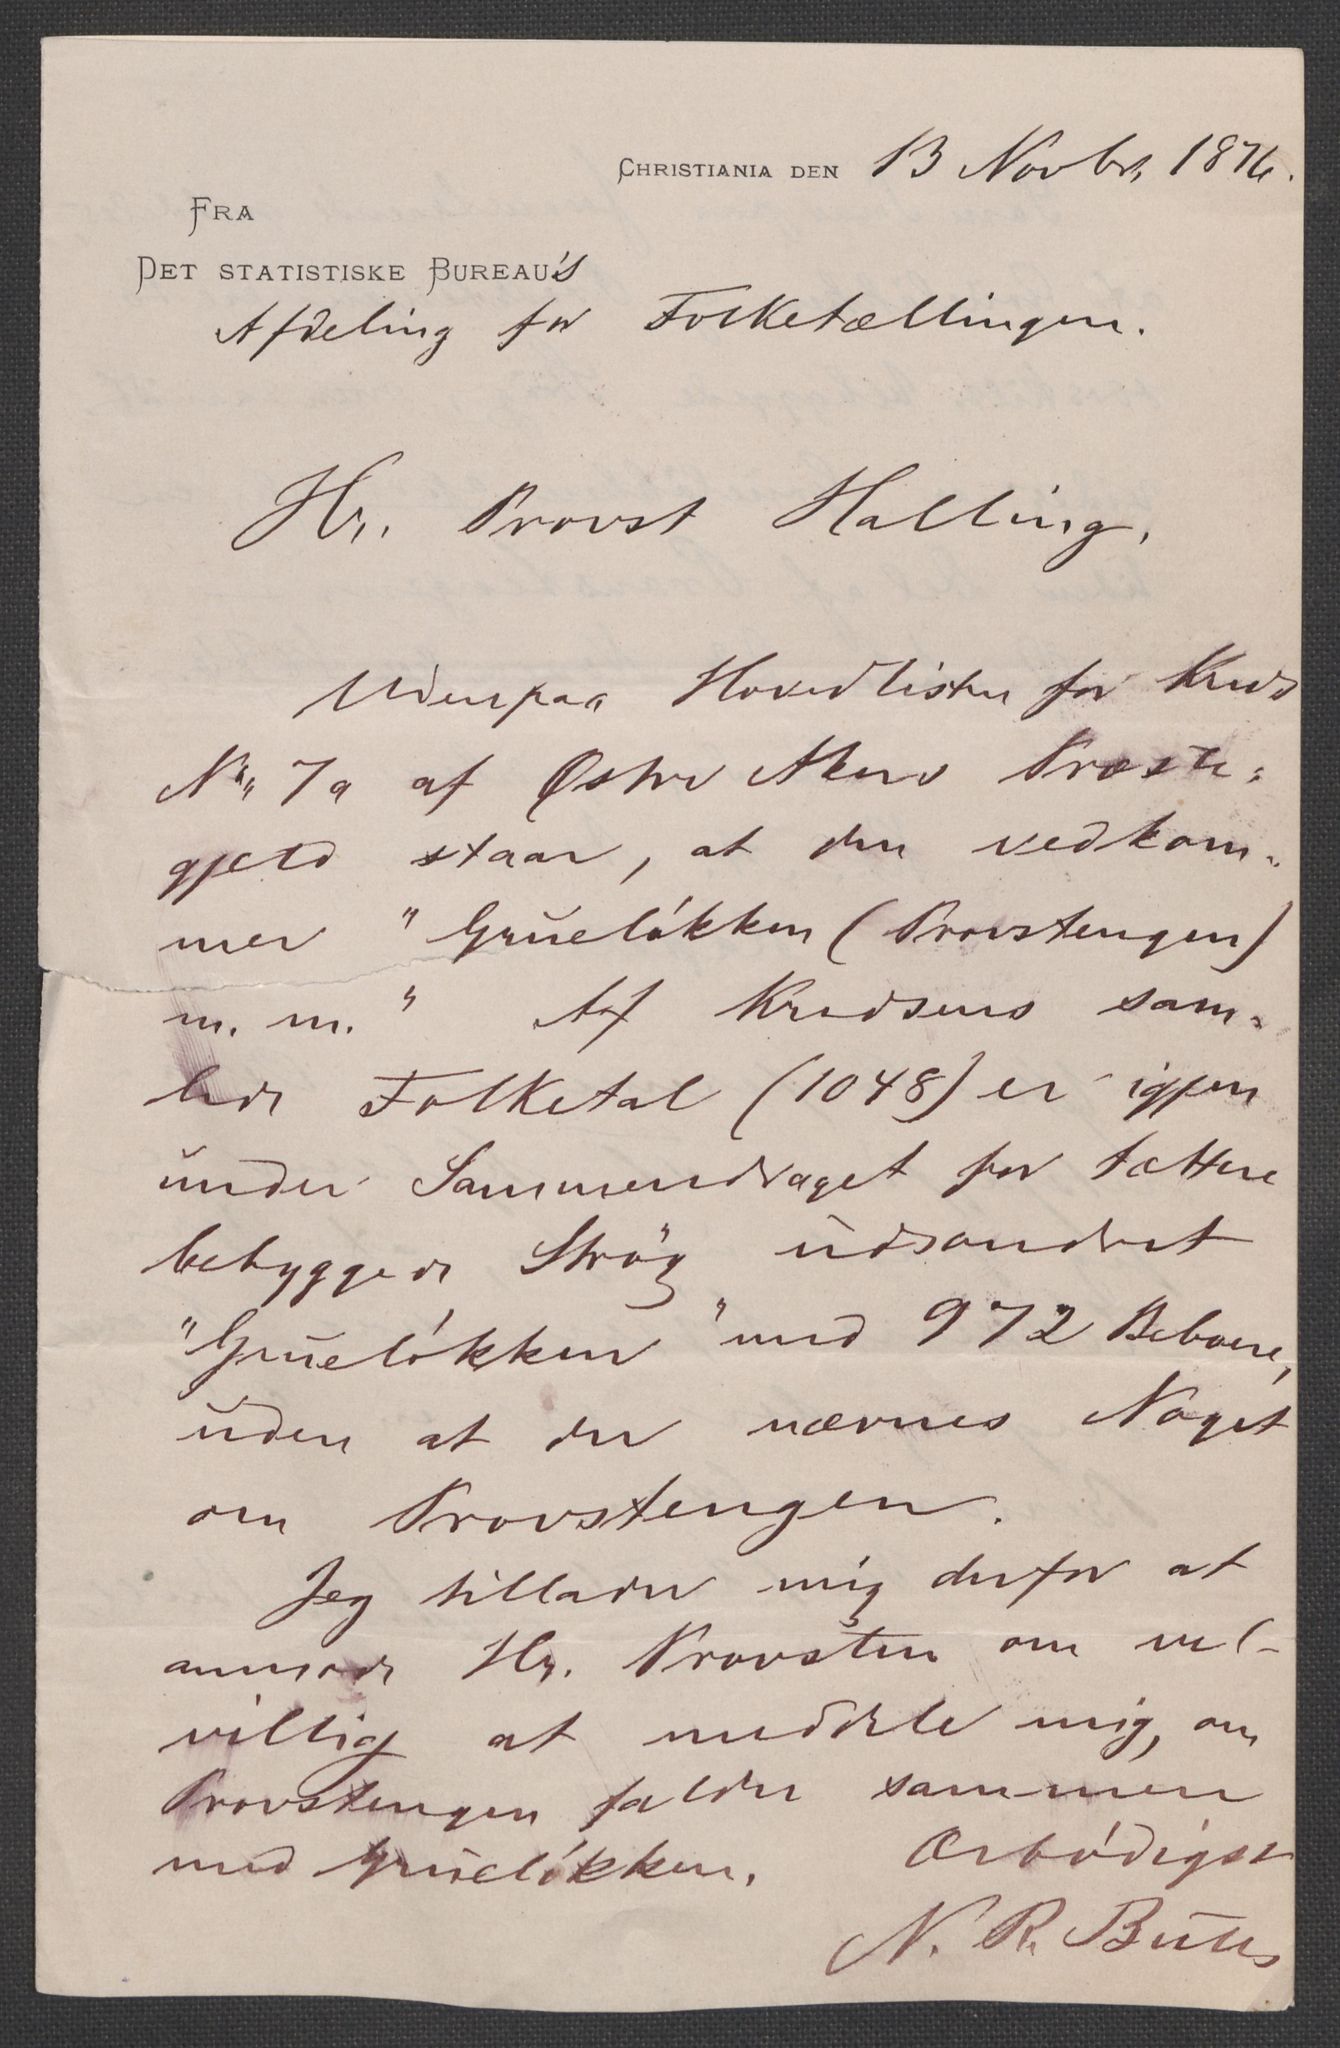 CHRISTIANIA DEN 13 Novbr. 1876.
FRA
DET STATISTISKE BUREAU's
Afdeling for Folketællingen.
Hr. Provst Halling.
Udenpaa Hovedlisten for Kreds
No. 7a af Østre Akers Præste-
gjeld staar, at den vedkom-
mer "Grüeløkken (Provstengen)
m. m." Af Kredsens sam-
lede Folketal (1048) er igjen
under Sammendraget for tættere
bebyggede Strøg udsondret
"Grüeløkken" med 972 Beboere,
uden at der nævnes Noget
om Provstengen.
Jeg tillader mig derfor at
anmode Hr. Provsten om vel-
villig at meddele mig, om
Provstengen falder sammen
med Grüeløkken. Ærbødigst
N. R. Bull